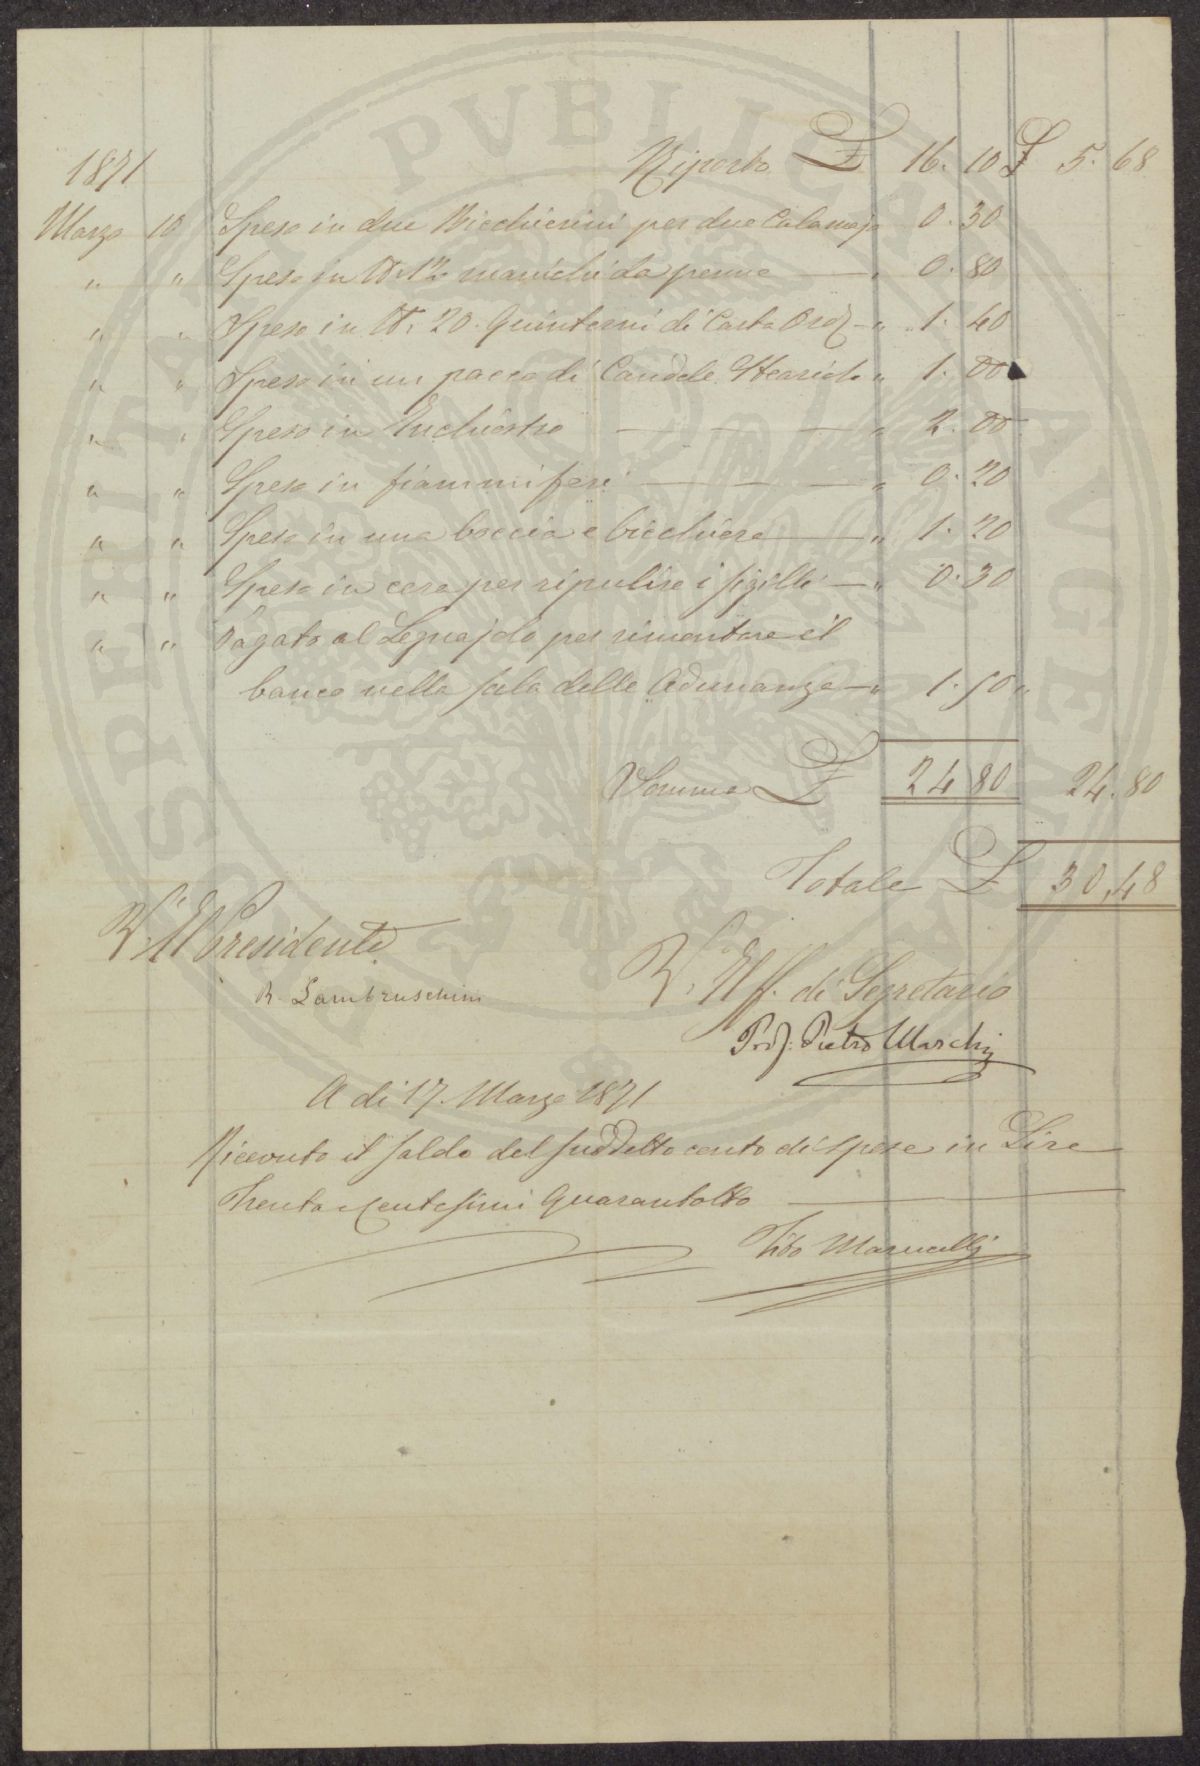 PROSPERITATI PVBLICAE AVGENDAE
1871 Riporto £ 16. 10 £ 5. 68
Marzo 10 Speso in due Bicchierini per due Calamaj 0. 30
" " Speso in N. 12 manichi da penne — " 0. 80
" " Speso in N. 20. Quinterni di Carta Ord. — " 1. 40
" " Speso in un pacco di Candele Steariche " 1. 00
" " Speso in Inchiostro — — — " 2. 00
" " Speso in fiammiferi — — — " 0. 20
" " Speso in una boccia e bicchiere — " 1. 20
" " Speso in cera per ripulire i sigilli — " 0. 30
" " Pagato al Legnajolo per rimontare il
banco nella sala delle Adunanze — " 1. 50 "
Somma £ 24 80 24. 80
Totale £ 30, 48
V. Il Presidente
R. Lambruschini
V. Il ff. di Segretario
Prof. Pietro Marchi
A dì 17. Marzo 1871
Ricevuto il saldo del suddetto conto di spese in Lire
Trenta e Centesimi Quarantotto —
Tito Marucelli